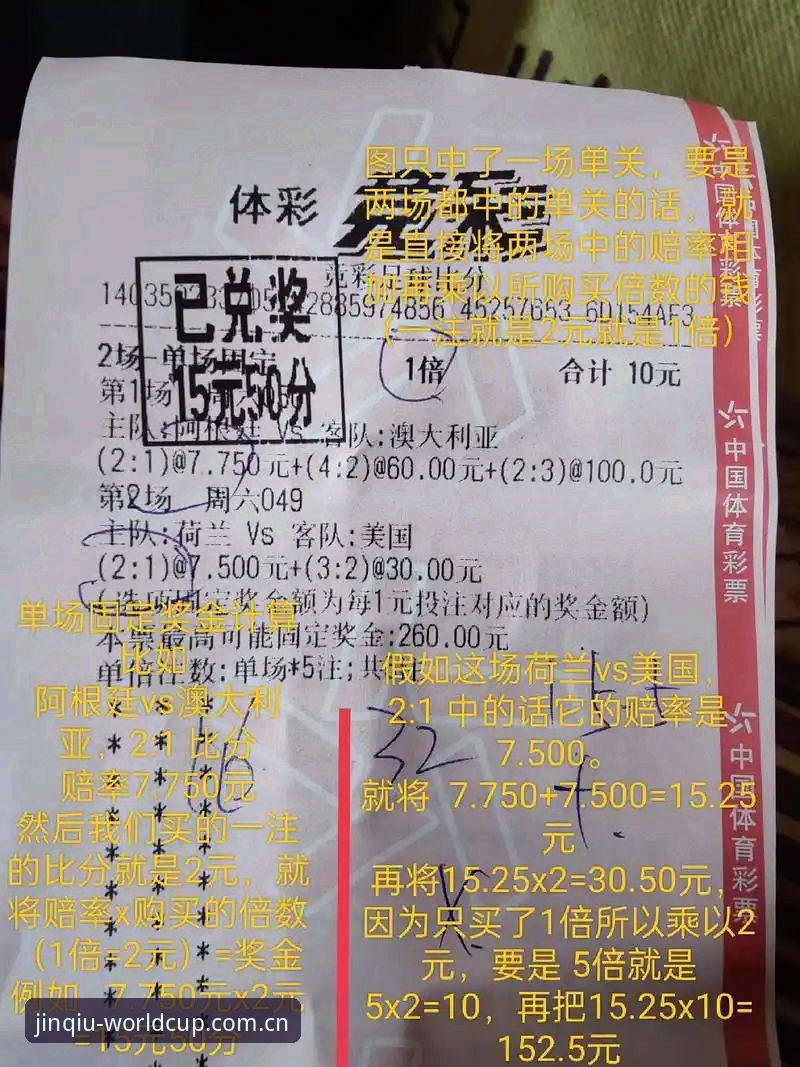 图只中了一场单关，要是
两场都中的单关的话，就
是直接将两场中的赔率相
加再乘以所购买倍数的钱
（一注就是2元就是1倍）
体彩
竞彩足球比分
已兑奖
15元50分
2场-单场固定
1倍
合计 10元
第1场
主队:阿根廷 Vs 客队:澳大利亚
(2:1)@7.750元+(4:2)@60.00元+(2:3)@100.0元
第2场 周六049
主队:荷兰 Vs 客队:美国
(2:1)@7.500元+(3:2)@30.00元
(选项固定奖金额为每1元投注对应的奖金额)
本票最高可能固定奖金:260.00元
单倍注数:单场*5注;共
单场固定奖金计算
比如
阿根廷vs澳大利
亚，2:1 比分
赔率7.750元
然后我们买的一注
的比分就是2元，就
将赔率x购买的倍数
（1倍=2元）=奖金
例如 7.750元x2元
=15元50分
假如这场荷兰vs美国，
2:1 中的话它的赔率是
7.500。
就将 7.750+7.500=15.25
元
再将15.25x2=30.50元，
因为只买了1倍所以乘以2
元，要是 5倍就是
5x2=10，再把15.25x10=
152.5元
32
中国体育彩票
中国体育彩票
中国体育彩票
jinqiu-worldcup.com.cn